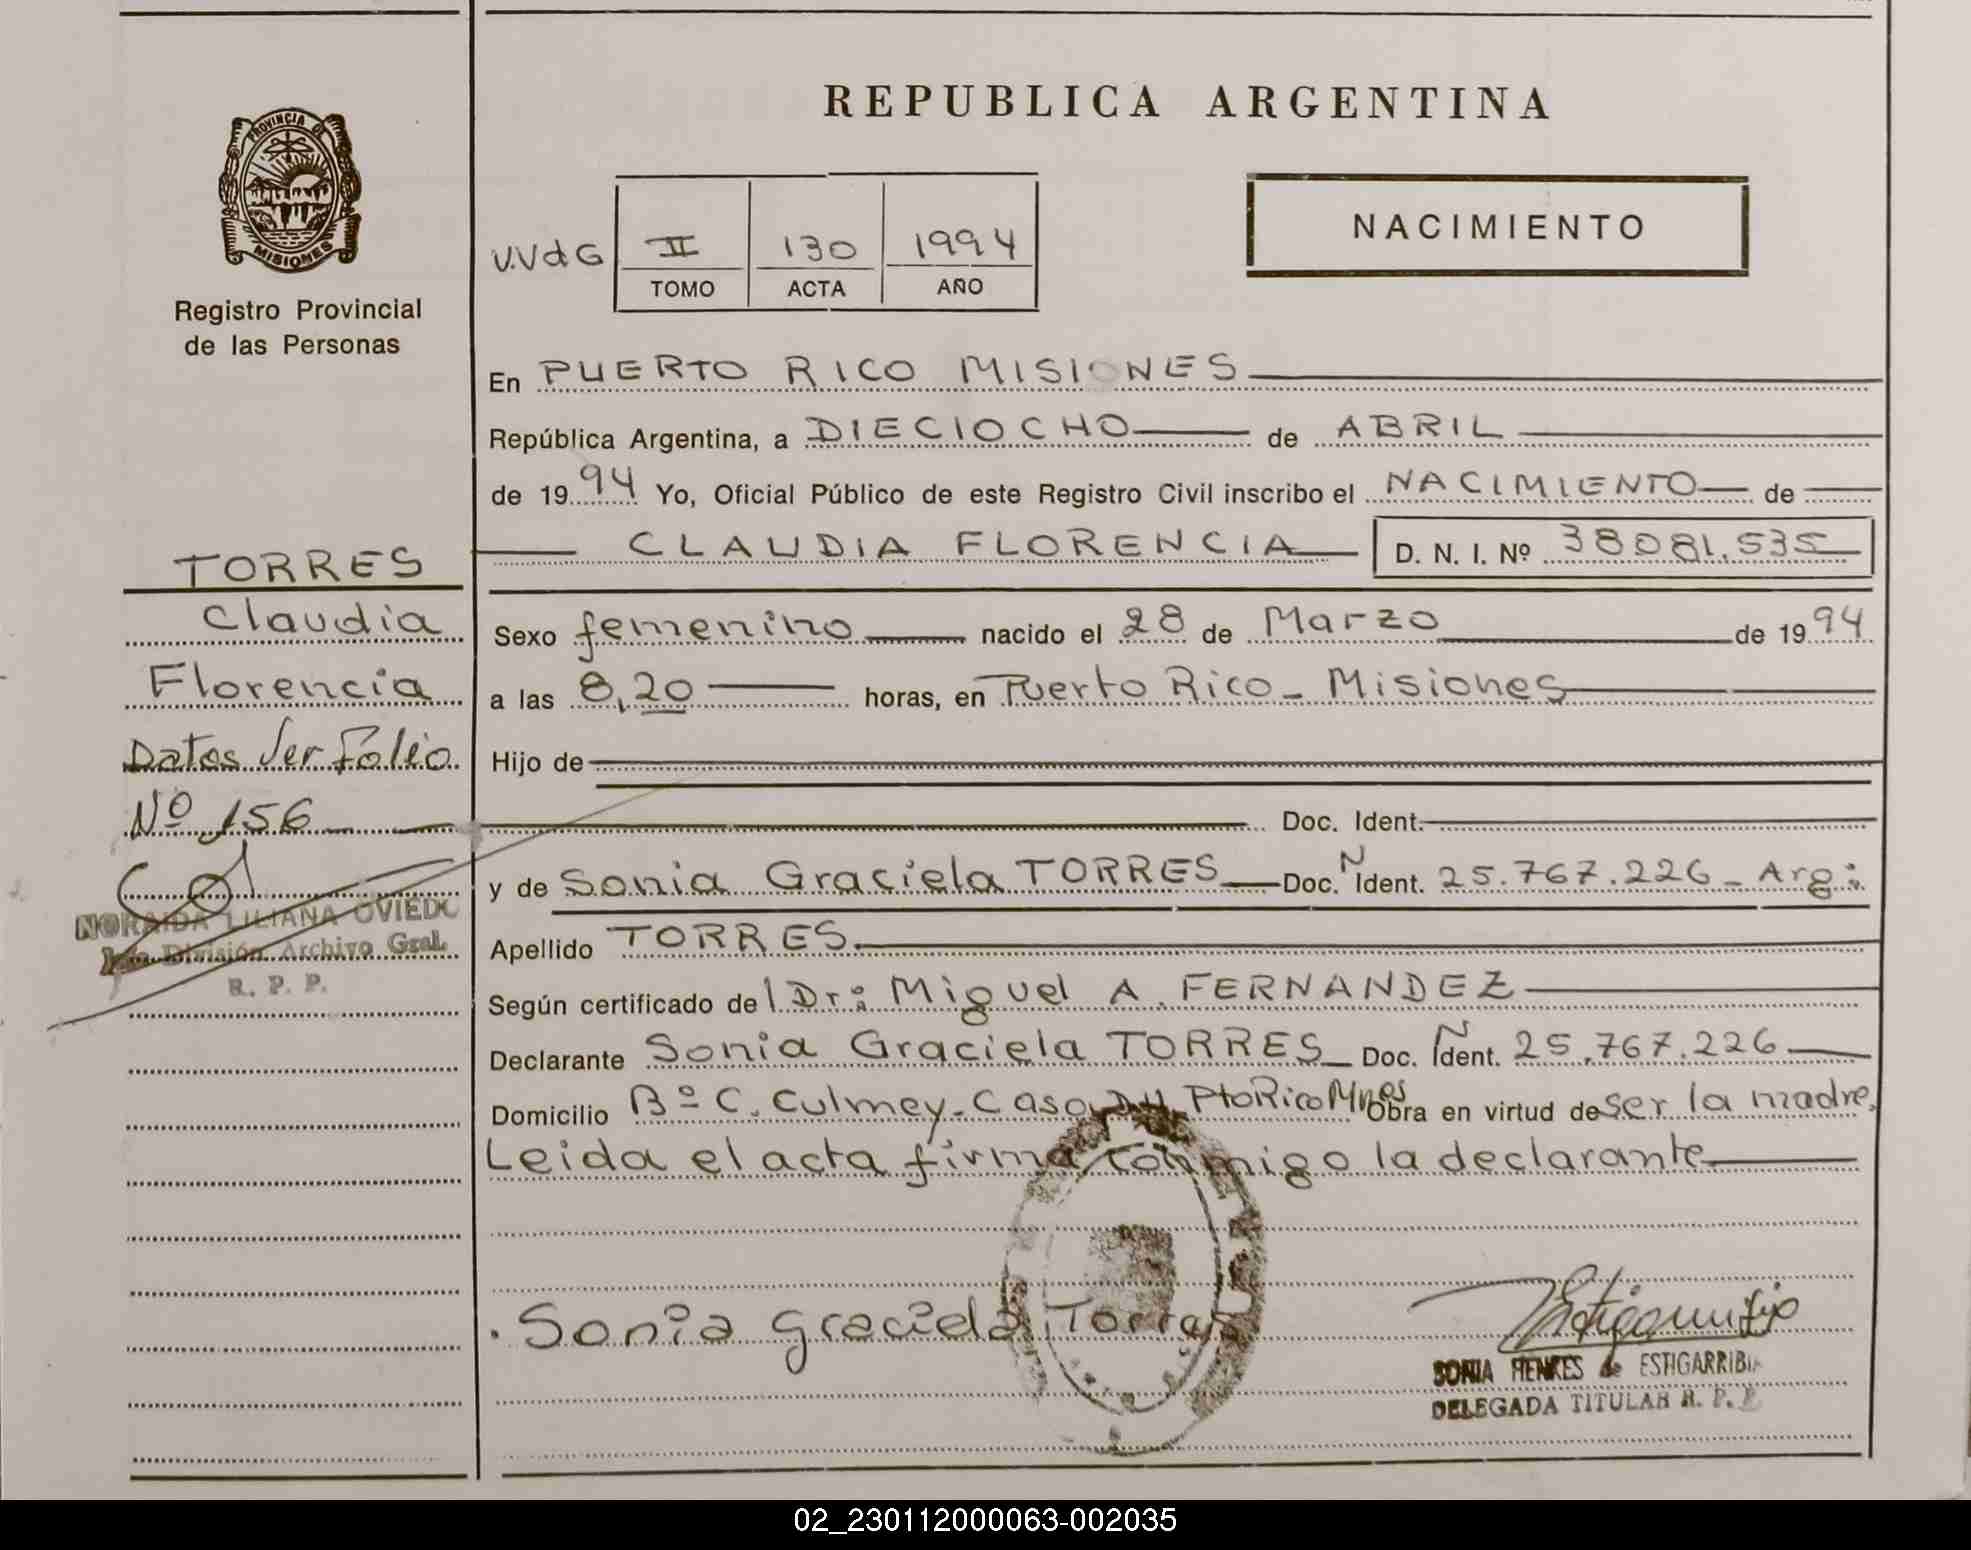 PROVINCIA DE
MISIONES
Registro Provincial
de las Personas
TORRES
Claudia
Florencia
Datos Ver Folio
Nº 156
NORAIDA LILIANA OVIEDO
División Archivo Gral.
R. P. P.
REPUBLICA ARGENTINA
V.VdG II 130 1994
TOMO ACTA AÑO
NACIMIENTO
En PUERTO RICO MISIONES
República Argentina, a DIECIOCHO de ABRIL
de 1994 Yo, Oficial Público de este Registro Civil inscribo el NACIMIENTO de
CLAUDIA FLORENCIA D. N. I. Nº 38081.535
Sexo femenino nacido el 28 de Marzo de 1994
a las 8,20 horas, en Puerto Rico - Misiones
Hijo de
Doc. Ident.
y de Sonia Graciela TORRES Doc. N Ident. 25.767.226 - Arg:
Apellido TORRES
Según certificado de l Dr: Miguel A. FERNANDEZ
Declarante Sonia Graciela TORRES Doc. N Ident. 25.767.226
Domicilio Bº C. Culmey - Casa PtoRico Mnes Obra en virtud de ser la madre.
Leida el acta firma conmigo la declarante
Sonia graciela Torres
SONIA HENKES de ESTIGARRIBIA
DELEGADA TITULAR R. P. P.
02_230112000063-002035